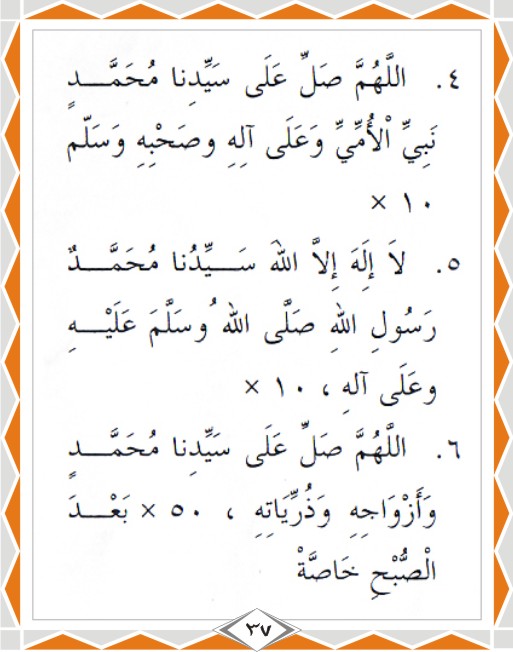 ٤. اللَّهُمَّ صَلِّ عَلَى سَيِّدِنا مُحَمَّـــدٍ
نَبِيِّ اْلأُمِّيِّ وَعَلَى آلِهِ وصَحْبِهِ وَسَلّم
١٠ ×
٥. لاَ إِلَهَ إِلاَّ اللهَ سَـــيِّدُنا مُحَمَّـــدٌ
رَسُولِ اللهِ صَلَّى اللهُ وسَلَّمَ عَلَيْـــهِ
وعَلَى آلهِ ، ١٠ ×
٦. اللَّهُمَّ صَلِّ عَلَى سَيِّدِنا مُحَمَّـــدٍ
وَأَزْوَاجِهِ وَذُرِّيَاتِهِ ، ٥٠ × بَعْـــدَ
الْصُّبْحِ خَاصَّةْ
٣٧